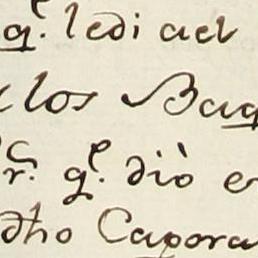 qe. ledi ael
los Baq
r. qe. diò e
dho Capora